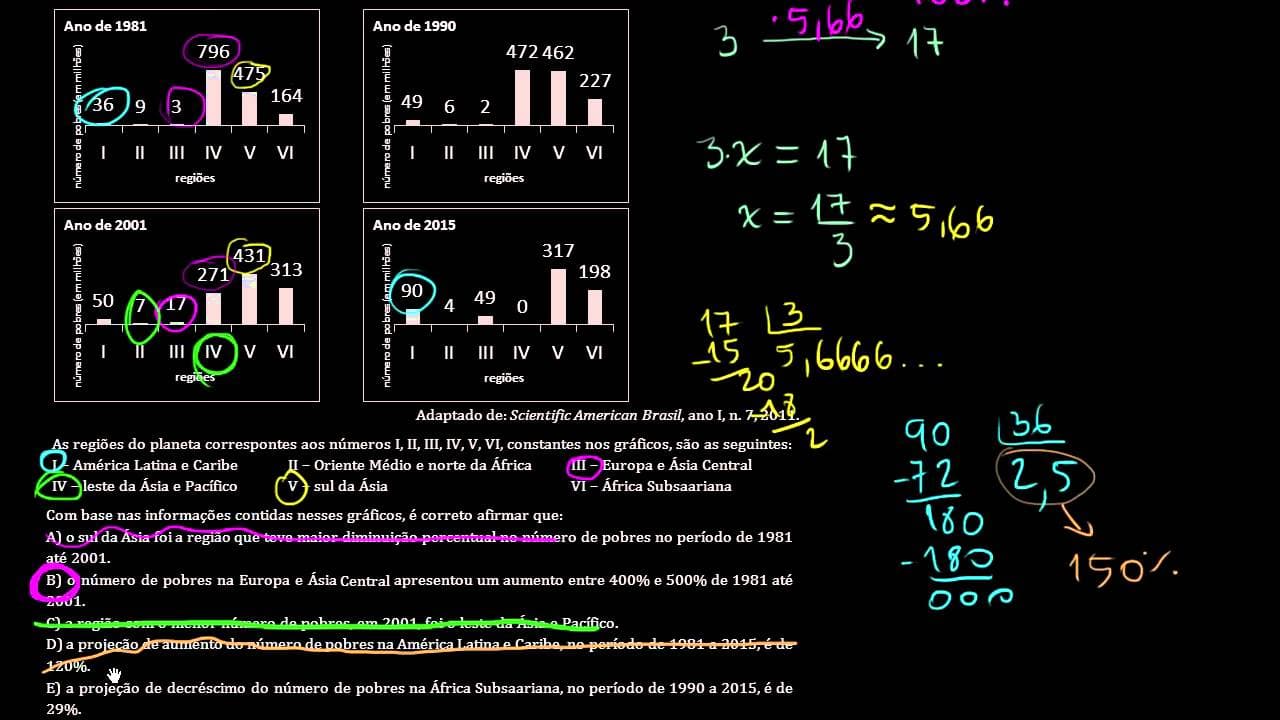 Ano de 1981
número de pobres (em milhões)
36 9 3 796 475 164
I II III IV V VI
regiões
Ano de 1990
número de pobres (em milhões)
49 6 2 472 462 227
I II III IV V VI
regiões
Ano de 2001
número de pobres (em milhões)
50 7 17 271 431 313
I II III IV V VI
regiões
Ano de 2015
número de pobres (em milhões)
90 4 49 0 317 198
I II III IV V VI
regiões
Adaptado de: Scientific American Brasil, ano I, n. 7, 2011.
As regiões do planeta correspontes aos números I, II, III, IV, V, VI, constantes nos gráficos, são as seguintes:
I – América Latina e Caribe II – Oriente Médio e norte da África III – Europa e Ásia Central
IV – leste da Ásia e Pacífico V – sul da Ásia VI – África Subsaariana
Com base nas informações contidas nesses gráficos, é correto afirmar que:
A) o sul da Ásia foi a região que teve maior diminuição percentual no número de pobres no período de 1981
até 2001.
B) o número de pobres na Europa e Ásia Central apresentou um aumento entre 400% e 500% de 1981 até
2001.
C) a região com o menor número de pobres, em 2001, foi o leste da Ásia e Pacífico.
D) a projeção de aumento do número de pobres na América Latina e Caribe, no período de 1981 a 2015, é de
120%.
E) a projeção de decréscimo do número de pobres na África Subsaariana, no período de 1990 a 2015, é de
29%.
·5,66
3 → 17
3·x = 17
x = 17/3 ≈ 5,66
17 3
-15 5,6666...
20
-18
2
90 36
-72 2,5
180
-180
000
150%